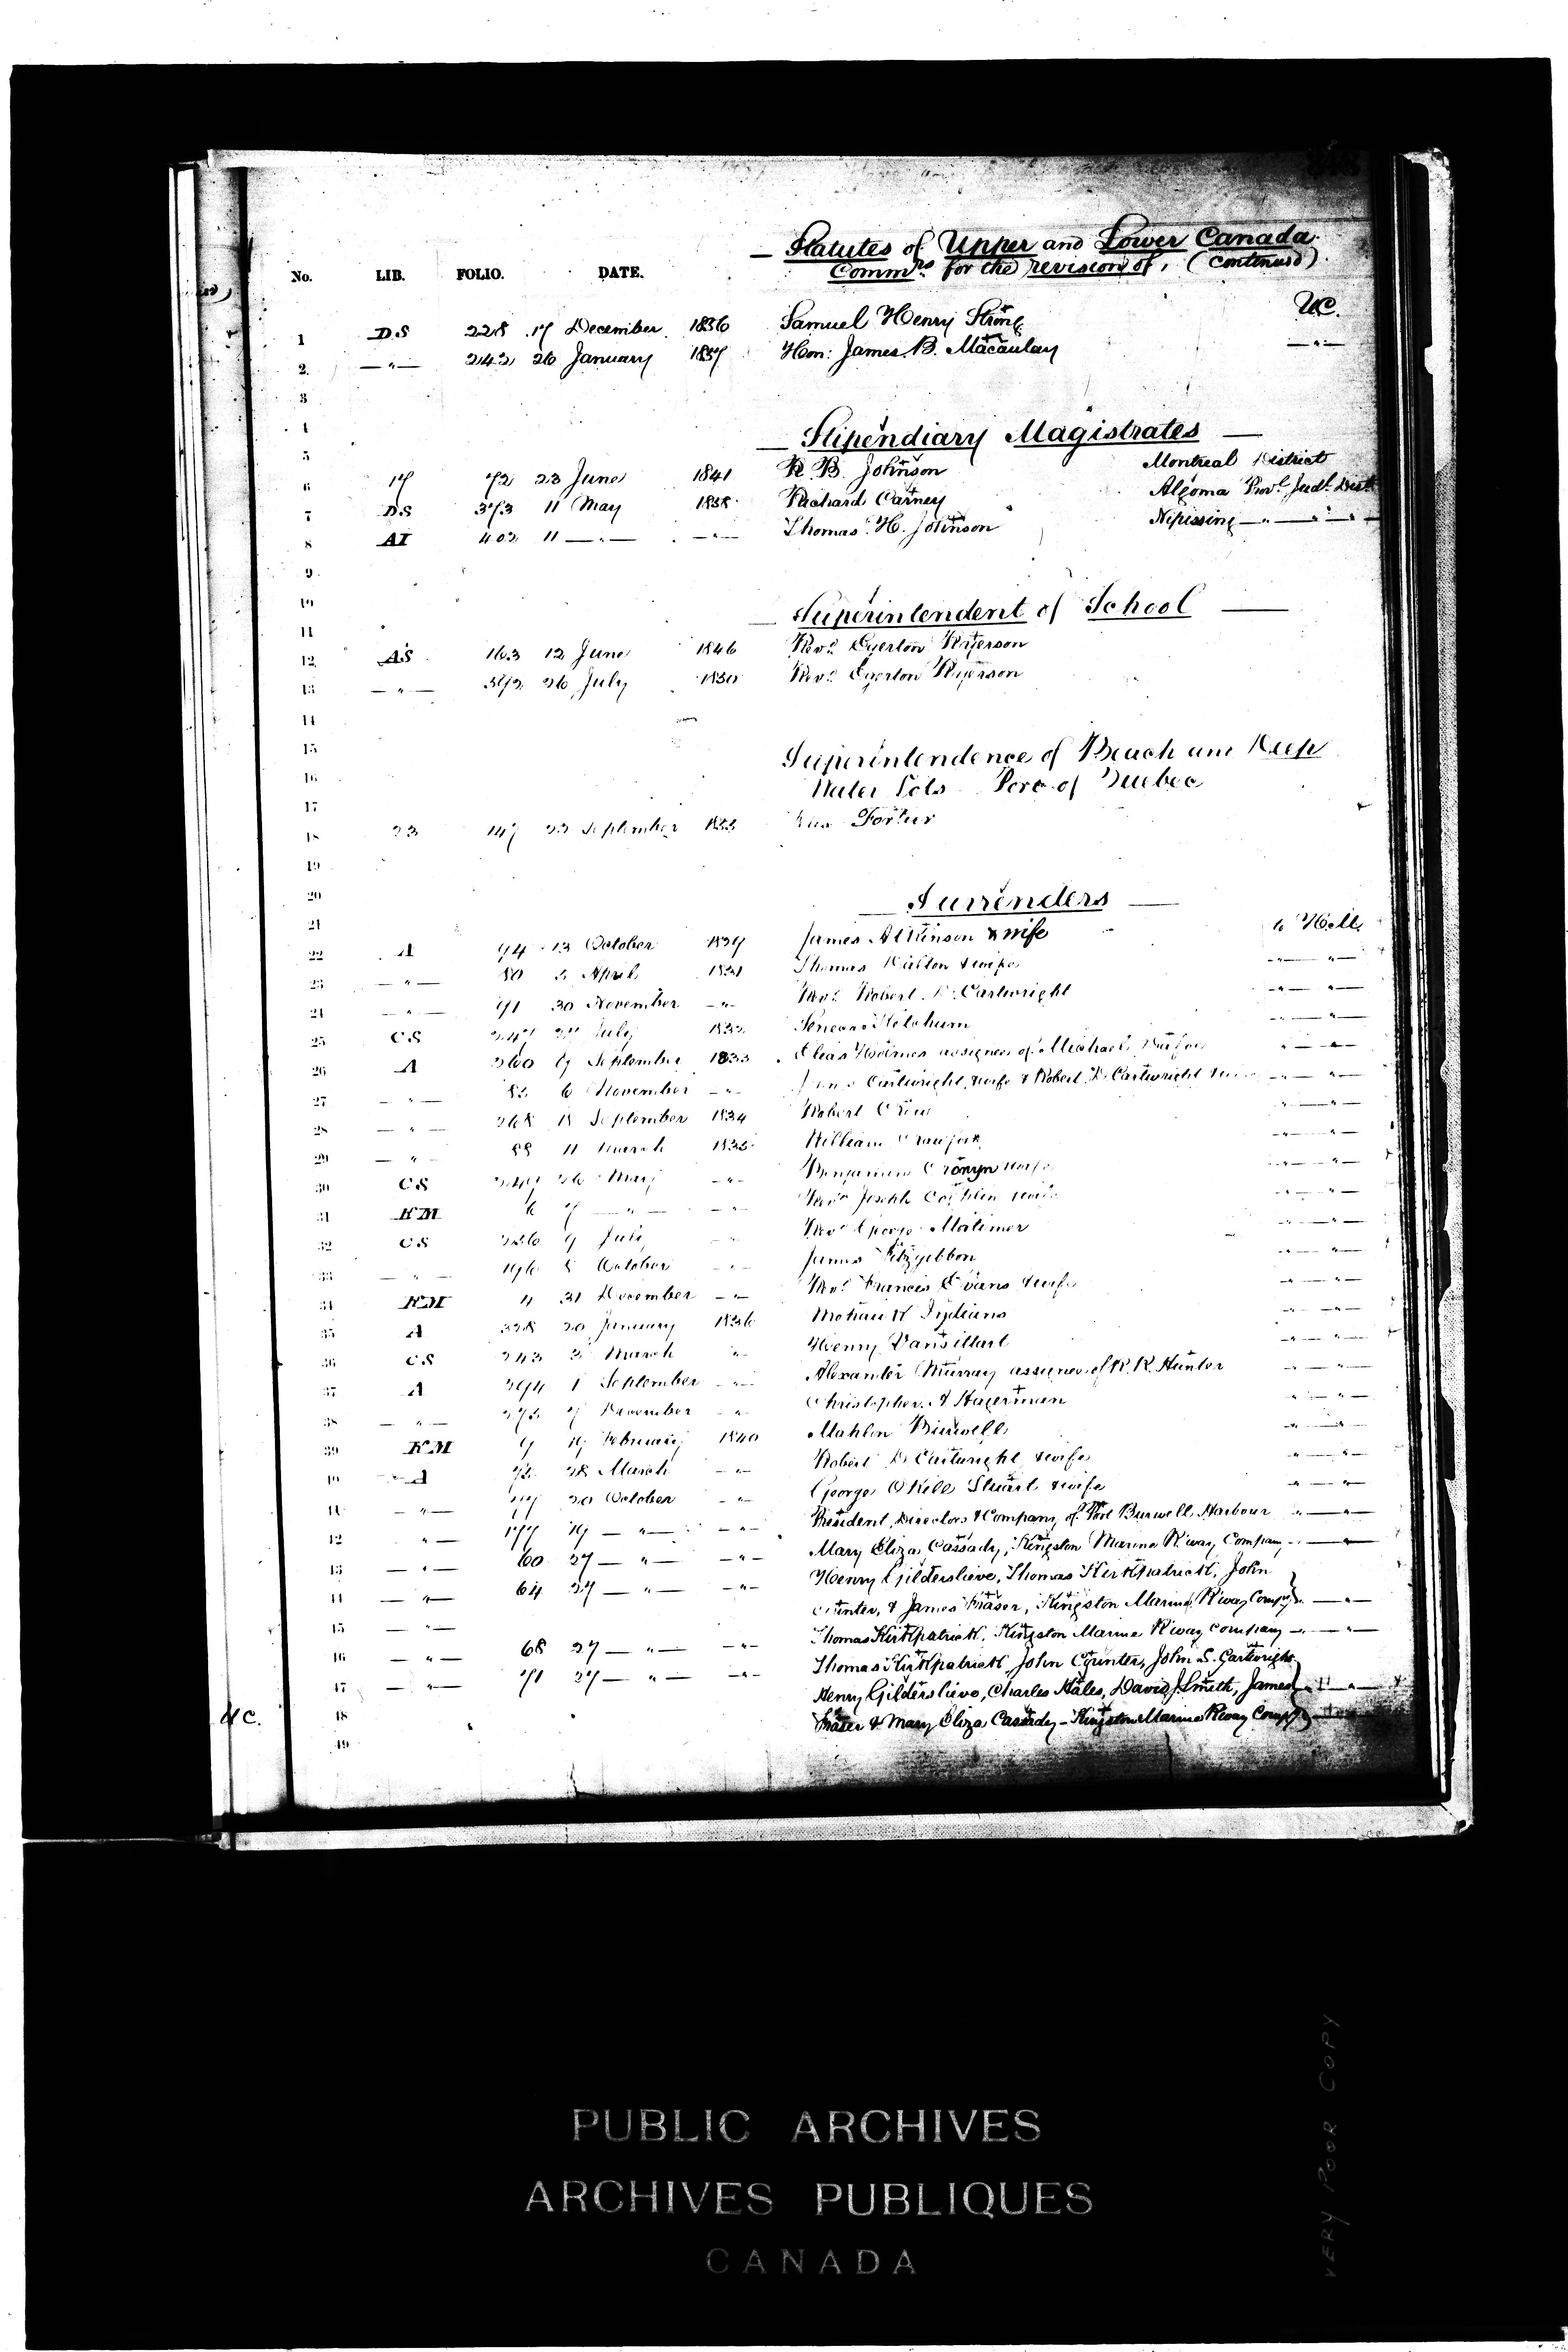 Statutes of Upper and Lower Canada.
Comm.rs for the revision of, (continued).
No. LIB. FOLIO. DATE.
1 DS 228 17 December 1856 Samuel Henry Strong UC.
2 —"— 242 26 January 1857 Hon: James B. Macaulay —"—
3
4 Stipendiary Magistrates
5
6 17 72 23 June 1841 R. B. Johnson Montreal District
7 DS 373 11 May 1858 Richard Carney Algoma Prov.l Jud.l Dist
8 AI 402 11 —"— —"— Thomas H. Johnson Nipissing —"— —"—
9
10 Superintendent of School
11
12 AS 163 12 June 1846 Rev.d Egerton Ryerson
13 —"— 26 July 1850 Rev.d Egerton Ryerson
14
15 Superintendence of Beach and Deep
16 Water Lots Port of Quebec
17
18 23 147 22 September Fortier
19
20 Surrenders
21
22 A 74 13 October James Atkinson & wife to H.M.
23 —"— 80 5 April 1831 Thomas Dalton & wife —"— —"—
24 —"— 71 30 November —"— Rev.d Robert D. Cartwright —"— —"—
25 CS 247 July 1832 Ketchum —"— —"—
26 A 260 17 September 1833 Elias Holmes assignee of Michael —"— —"—
27 —"— 6 November —"— Cartwright & wife & Robert D. Cartwright —"— —"—
28 —"— 268 18 September 1834 Robert —"— —"—
29 —"— 88 11 March 1835 William Crawford —"— —"—
30 CS 26 May —"— Benjamin Cronyn & wife —"— —"—
31 KM 6 7 —"— —"— Rev.d Joseph & wife —"— —"—
32 CS 9 July —"— Rev.d George Matimer —"— —"—
33 —"— 196 8 October —"— James Fitzgibbon —"— —"—
34 KM 4 31 December —"— Rev.d Francis Evans & wife —"— —"—
35 A 328 20 January 1836 Mohawk Indians —"— —"—
36 CS 243 3 March —"— Henry Vansittart —"— —"—
37 A 294 1 September —"— Alexander Murray assignee of R. R. Hunter —"— —"—
38 —"— 7 December —"— Christopher A Hagerman —"— —"—
39 KM 9 19 February 1840 Mahlon Burwell —"— —"—
40 A 28 March —"— Robert D. Cartwright & wife —"— —"—
41 —"— 20 October —"— George OKill Stuart & wife —"— —"—
42 —"— 177 19 —"— —"— President, Directors & Company of Port Burwell Harbour —"— —"—
43 —"— 60 27 —"— —"— Mary Eliza Cassady, Kingston Marine R'way Company —"— —"—
44 —"— 64 27 —"— —"— Henry Gilderslieve, Thomas Kirkpatrick, John
45 —"— Counter, & James Fraser, Kingston Marine R'way Comp.y —"—
46 —"— 68 27 —"— —"— Thomas Kirkpatrick, Kingston Marine R'way Company —"— —"—
47 —"— 71 27 —"— —"— Thomas Kirkpatrick, John Counter, John S. Cartwright
48 Henry Gilderslieve, Charles Hales, David J. Smith, James
49 Fraser & Mary Eliza Cassady - Kingston Marine R'way Comp.y
UC.
PUBLIC ARCHIVES
ARCHIVES PUBLIQUES
CANADA
VERY POOR COPY